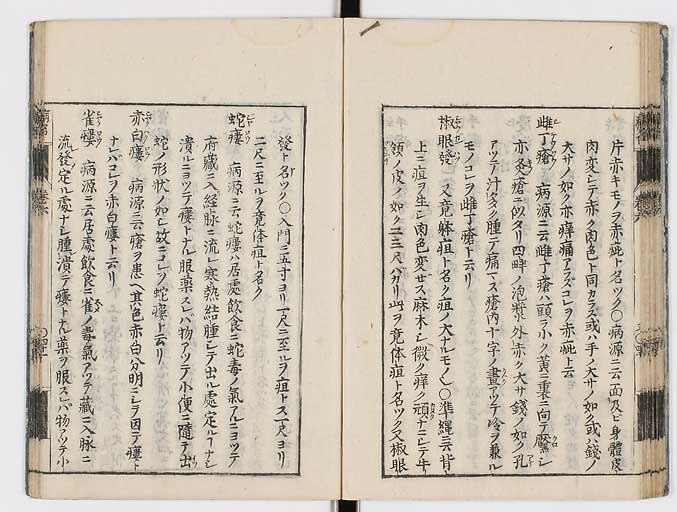 片赤キモノヲ赤疵ト名ツク〇病源ニ云面及ビ身體皮
肉変シテ赤ク肉色ト同カラズ或ハ手ノ大サノ如ク或ハ錢ノ
大サノ如ク亦痒痛アラズコレヲ赤疵ト云
雌丁瘡 病源ニ云雌丁瘡ハ頭ヲ小ク黄ニ裏ニ向テ黶シ
亦灸瘡ニ似タリ四畔ノ泡漿外赤ク大サ錢ノ如ク孔
アツテ汁タク腫テ痛マズ瘡内十字ノ畫アツテ冷ヲ兼ル
モノコレヲ雌丁瘡ト云リ
椒眼發 又竟躰疽ト名ク疽ノ大ナルモノ〇準縄ニ云背
上ニ疽ヲ生シ肉色変セズ麻木シ微ク痒ク頑ナニシテ牛
領ノ皮ノ如ク二三尺バカリ此ヲ竟体疽ト名ツク又椒眼
發ト名ツク〇入門ニ五寸ヨリ一尺ニ至ルヲ疽トス一尺ヨリ
二尺ニ至ルヲ竟体疽ト名ク
蛇瘻 病源ニ云蛇瘻ハ居處飲食ニ蛇毒ノ氣アルニヨツテ
府藏ニ入経脉ニ流レ寒熱結腫シテ出ル處定ルナシ
潰ルニヨツテ瘻トナル服藥スレバ物アツテ小便ニ隨テ出
蛇ノ形状ノ如シ故ニコレヲ蛇瘻ト云リ
赤白瘻 病源ニ云瘡ヲ患ヘ其色赤白分明ニシテ因テ瘻ト
ナレバコレヲ赤白瘻ト云リ
雀瘻 病源ニ云居處飲食ニ雀ノ毒氣アツテ藏ニ入脉ニ
流發定ル處ナシ腫潰テ瘻トナル藥ヲ服スレバ物アツテ小